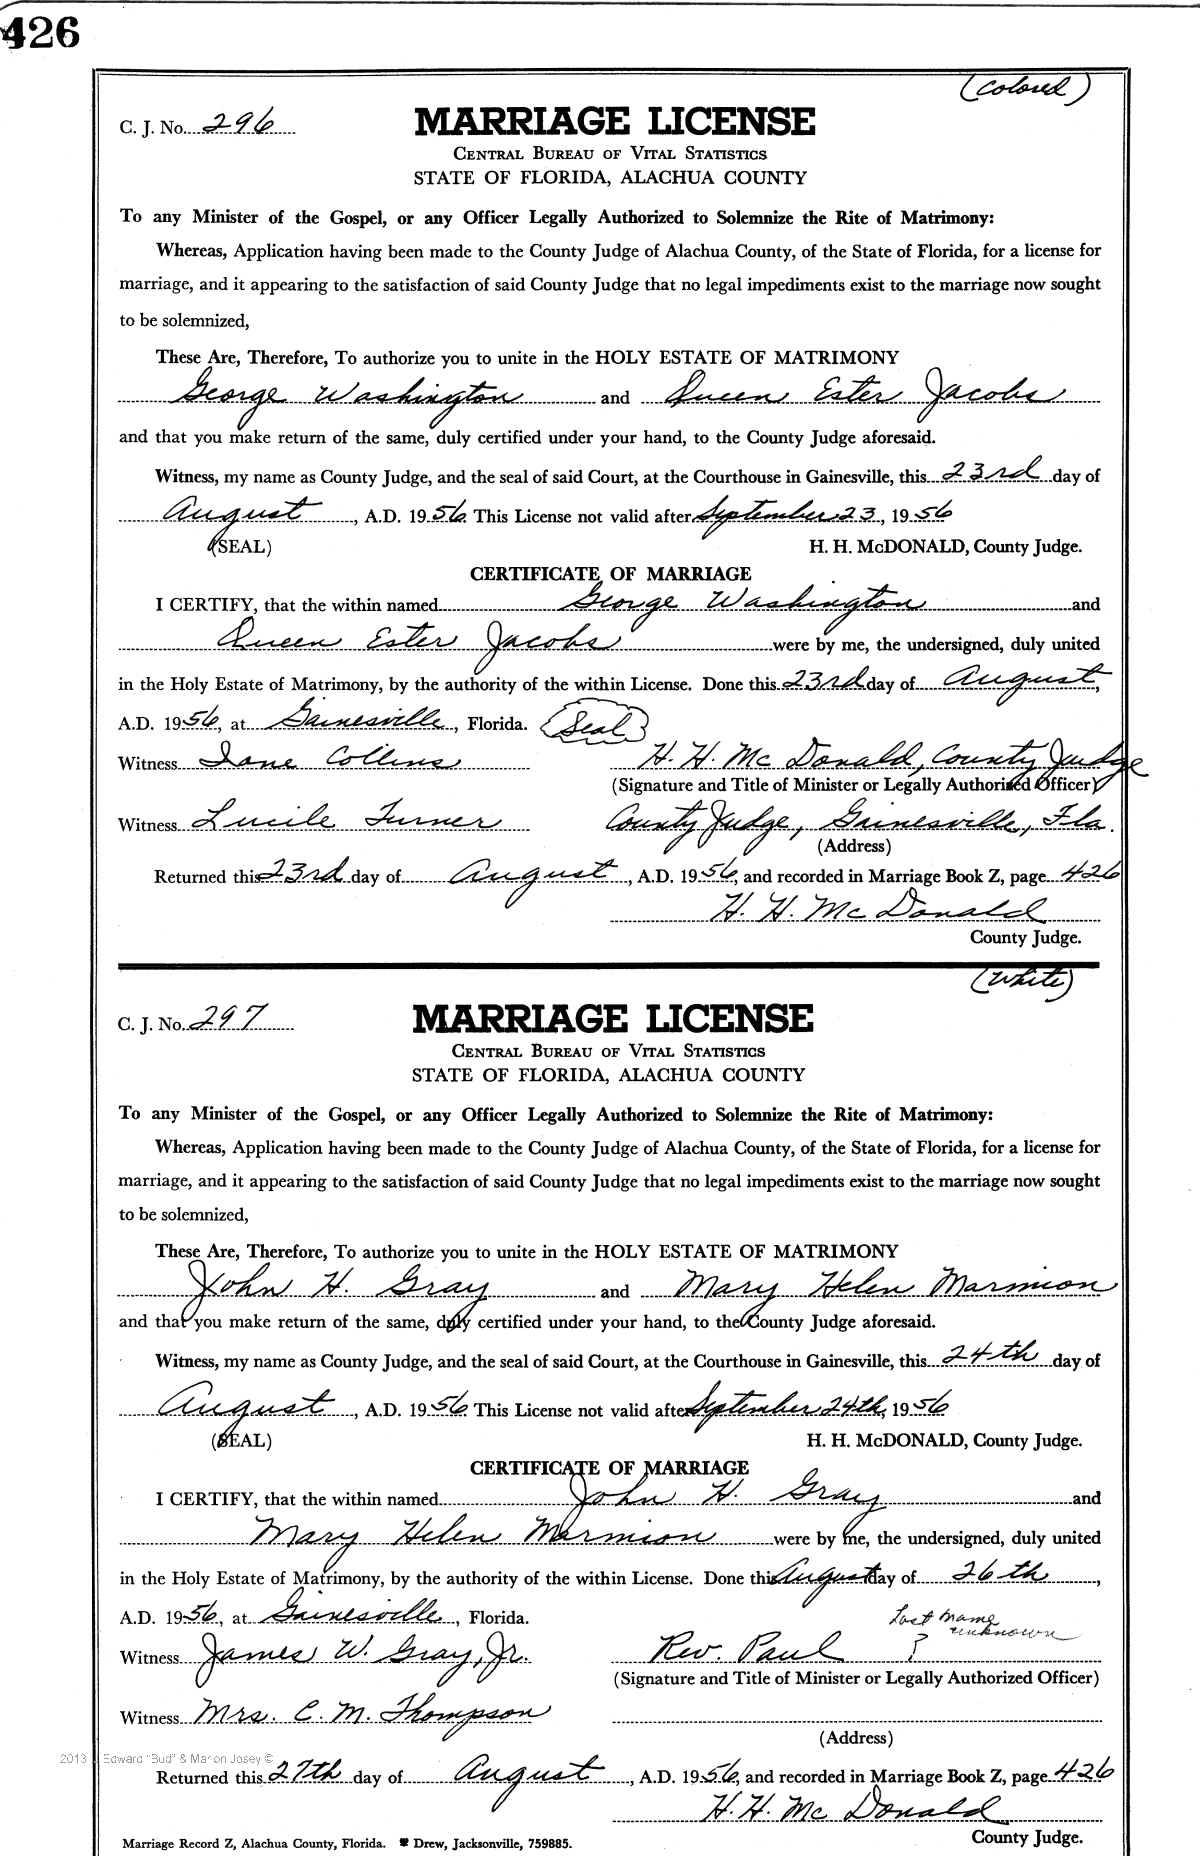 426
(Colored)
C. J. No. 296
MARRIAGE LICENSE
CENTRAL BUREAU OF VITAL STATISTICS
STATE OF FLORIDA, ALACHUA COUNTY
To any Minister of the Gospel, or any Officer Legally Authorized to Solemnize the Rite of Matrimony:
Whereas, Application having been made to the County Judge of Alachua County, of the State of Florida, for a license for
marriage, and it appearing to the satisfaction of said County Judge that no legal impediments exist to the marriage now sought
to be solemnized,
These Are, Therefore, To authorize you to unite in the HOLY ESTATE OF MATRIMONY
George Washington and Queen Ester Jacobs
and that you make return of the same, duly certified under your hand, to the County Judge aforesaid.
Witness, my name as County Judge, and the seal of said Court, at the Courthouse in Gainesville, this 23rd day of
August, A.D. 1956. This License not valid after September 23, 1956
(SEAL) H. H. McDONALD, County Judge.
CERTIFICATE OF MARRIAGE
I CERTIFY, that the within named George Washington and
Queen Ester Jacobs were by me, the undersigned, duly united
in the Holy Estate of Matrimony, by the authority of the within License. Done this 23rd day of August,
A.D. 1956, at Gainesville, Florida. (Seal)
Witness Iane Collins H. H. Mc Donald, County Judge
(Signature and Title of Minister or Legally Authorized Officer)
Witness Lucile Turner County Judge, Gainesville, Fla.
(Address)
Returned this 23rd day of August, A.D. 1956, and recorded in Marriage Book Z, page 426
H. H. Mc Donald
County Judge.
(White)
C. J. No. 297
MARRIAGE LICENSE
CENTRAL BUREAU OF VITAL STATISTICS
STATE OF FLORIDA, ALACHUA COUNTY
To any Minister of the Gospel, or any Officer Legally Authorized to Solemnize the Rite of Matrimony:
Whereas, Application having been made to the County Judge of Alachua County, of the State of Florida, for a license for
marriage, and it appearing to the satisfaction of said County Judge that no legal impediments exist to the marriage now sought
to be solemnized,
These Are, Therefore, To authorize you to unite in the HOLY ESTATE OF MATRIMONY
John H. Gray and Mary Helen Marmion
and that you make return of the same, duly certified under your hand, to the County Judge aforesaid.
Witness, my name as County Judge, and the seal of said Court, at the Courthouse in Gainesville, this 24th day of
August, A.D. 1956. This License not valid after September 24th, 1956
(SEAL) H. H. McDONALD, County Judge.
CERTIFICATE OF MARRIAGE
I CERTIFY, that the within named John H. Gray and
Mary Helen Marmion were by me, the undersigned, duly united
in the Holy Estate of Matrimony, by the authority of the within License. Done this August day of 26th,
A.D. 1956, at Gainesville, Florida. Last name
unknown
Witness James W. Gray, Jr. Rev. Paul ?
(Signature and Title of Minister or Legally Authorized Officer)
Witness Mrs. C. M. Thompson
(Address)
2013 J. Edward "Bud" & Marion Josey ©
Returned this 27th day of August, A.D. 1956, and recorded in Marriage Book Z, page 426
H. H. Mc Donald
County Judge.
Marriage Record Z, Alachua County, Florida. Drew, Jacksonville, 759885.